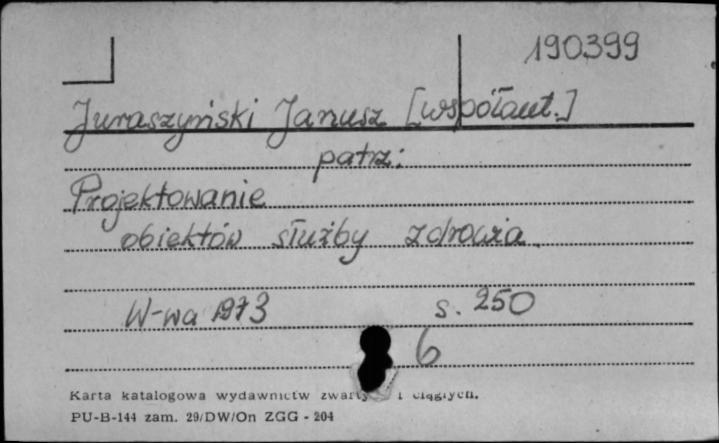 190399
Juraszyński Janusz [współaut.]
patrz:
Projektowanie
obiektów służby zdrowia
W-wa 1973 s. 250
6
Karta katalogowa wydawnictw zwartych i ciągłych.
PU-B-144 zam. 29/DW/On ZGG - 204